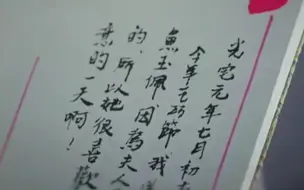 光宅元年七月初
今年七巧節我
魚玉佩，因為夫人
的，所以她很喜歡
意的一天啊！